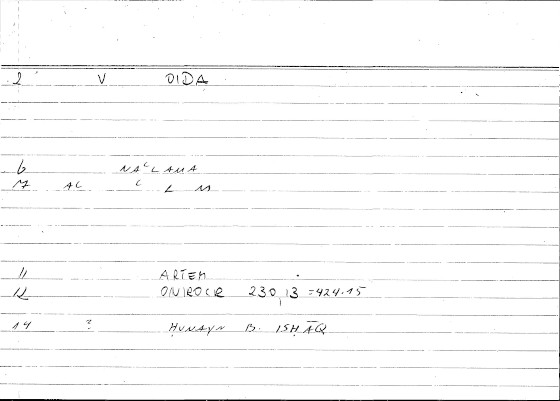 2 V DIDA
6 NAʿLAMA
7 AC C L M
11 ARTEM
12 ONIROCR 230,13 = 424.15
14 ? ḤUNAYN B. ISḤĀQ